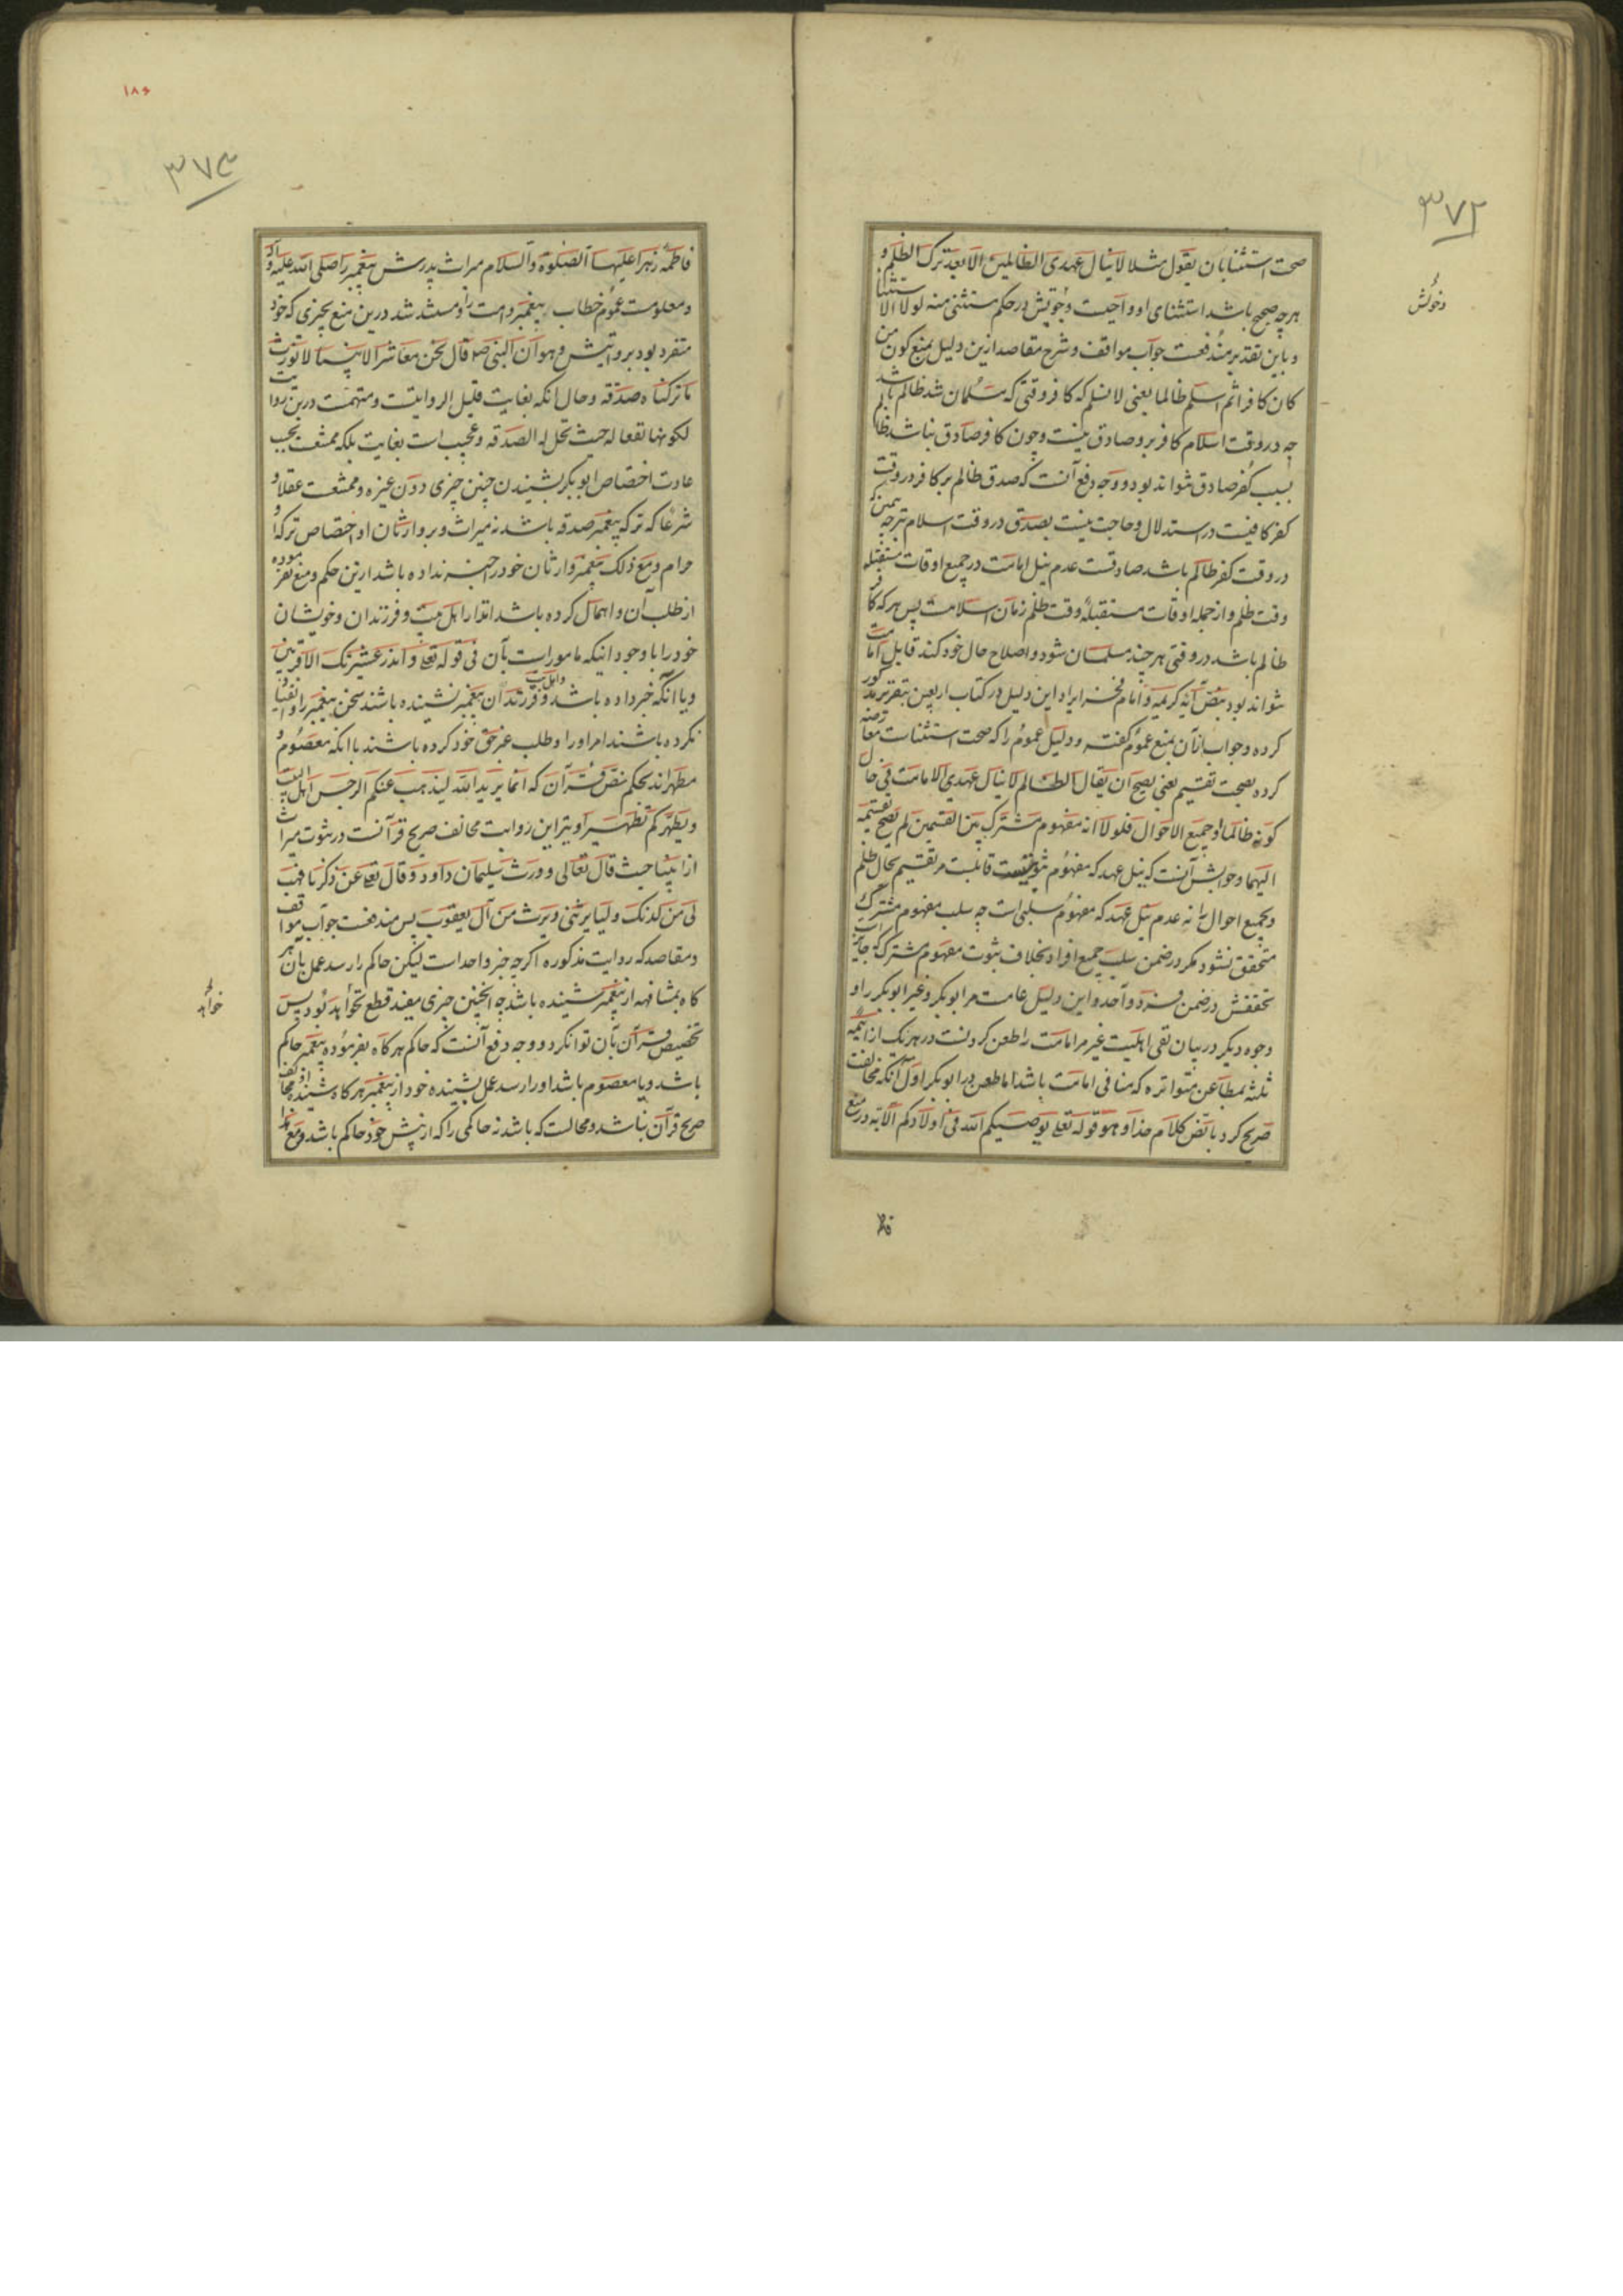 ۳۷۲
صحت استثنا بان یقول مثلا لا ینال عهدی الظالمین الا بعد ترک الظلم و
هرچه صحیح باشد استثنای او واجبست دخولش در حکم مستثنی منه لولا الاستثنا
و باین تقدیر مندفعست جواب مواقف و شرح مقاصد ازین دلیل بمنع کون من
کان کافرا ثم اسلم ظالما یعنی لا نسلم که کافر وقتی که مسلمان شد ظالم باشد
چه در وقت اسلام کافر برو صادق نیست و چون کافر صادق نباشد ظالم
بسبب کفر صادق نتواند بود و وجه دفع آنست که صدق ظالم بر کافر در وقت
کفر کافیست در استدلال و حاجت نیست بصدق در وقت اسلام چه همین که
در وقت کفر ظالم باشد صادقست عدم نیل امامت در جمیع اوقات مستقبله
وقت ظلم و از جمله اوقات مستقبله وقت ظلم زمان اسلامست پس هر که کافر
ظالم باشد در وقتی هر چند مسلمان شود و اصلاح حال خود کند قابل امامت
نتواند بود بنص آیه کریمه و امام فخر ایراد این دلیل در کتاب اربعین بتقریر مذکور
کرده و جواب ازان بمنع عموم گفته و دلیل عموم را که صحت استثناست معارضه
کرده بصحت تقسیم یعنی یصح ان یقال الظالم لا ینال عهدی الامامت فی حال
کونه ظالما او جمیع الاحوال فلولا انه مفهوم مشترک بین القسمین لم یصح تقسیمه
الیهما و جوابش آنست که نیل عهد که مفهوم ثبوتیست قابلست مر تقسیم بحال ظلم
و بجمیع احوال را نه عدم نیل عهد که مفهوم سلبی است چه سلب مفهوم مشترک
متحقق نشود مگر در ضمن سلب جمیع افراد بخلاف ثبوت مفهوم مشترک که جایز است
تحققش در ضمن فرد واحد و این دلیل عامست مر ابوبکر و غیر ابوبکر را و
وجوه دیگر در بیان نفی اهلیت غیر مر امامت را طعن کردنست در هر یک از ائمه
ثلثه بمطاعن متواتره که منافی امامت باشد اما طعن در ابوبکر اول آنکه مخالفت
صریح کرد با نص کلام خدا و هو قوله تعلی یوصیکم الله فی اولادکم الآیه در منع
دخولش
۱۸۶
۳۷۳
فاطمه زهرا علیها الصلوة والسلام میراث پدرش پیغمبر را صلی الله علیه و آله
و معلومست عموم خطاب پیغمبر و امت را و مستند شد درین منع بچیزی که خود
متفرد بود بروایتش و هو ان النبی صلم قال نحن معاشر الانبیا لا نورث
ما ترکناه صدقه و حال آنکه بغایت قلیل الروایتست و متهمست درین روایت
لکونها نفعا له حیث تحل له الصدقه و عجیب است بغایت بلکه ممتنعست بحسب
عادت اختصاص ابوبکر بشنیدن چنین چیزی دون غیره و ممتنعست عقلا و
شرعا که ترکه پیغمبر صدقه باشد نه میراث و بر وارثان او اختصاص ترکه او
حرام و مع ذلک پیغمبر وارثان خود را خبر نداده باشد ازین حکم و منع نفرموده
از طلب آن و اهمال کرده باشد انذار اهل بیت و فرزندان و خویشان
خود را با وجود اینکه مامور است بآن فی قوله تعلی و انذر عشیرتک الاقربین
و یا آنکه خبر داده باشد و فرزندان و اهل بیت پیغمبر نشنیده باشند سخن پیغمبر را و انقیاد
نکرده باشند امر او را و طلب غیر حق خود کرده باشند با آنکه معصوم و
مطهرند بحکم نص قرآن که انما یرید الله لیذهب عنکم الرجس اهل البیت
و یطهرکم تطهیرا و نیز این روایت مخالف صریح قرآنست در ثبوت میراث
از انبیا حیث قال تعالی و ورث سلیمان داود و قال تعلی عن زکریا فهب
لی من لدنک ولیا یرثنی و یرث من آل یعقوب پس مندفعست جواب مواقف
و مقاصد که روایت مذکوره اگرچه خبر واحد است لیکن حاکم را رسد عمل بآن هر
گاه بمشافهه از پیغمبر شنیده باشد چه اینچنین چیزی مفید قطع تواند بود پس
تخصیص قرآن بآن توان کرد و وجه دفع آنست که حاکم هرگاه بفرموده پیغمبر حاکم
باشد و یا معصوم باشد او را رسد عمل بشنیده خود از پیغمبر هرگاه شنیده او مخالف
صریح قرآن نباشد و محالست که باشد نه حاکمی را که از پیش خود حاکم باشد و مع هذا